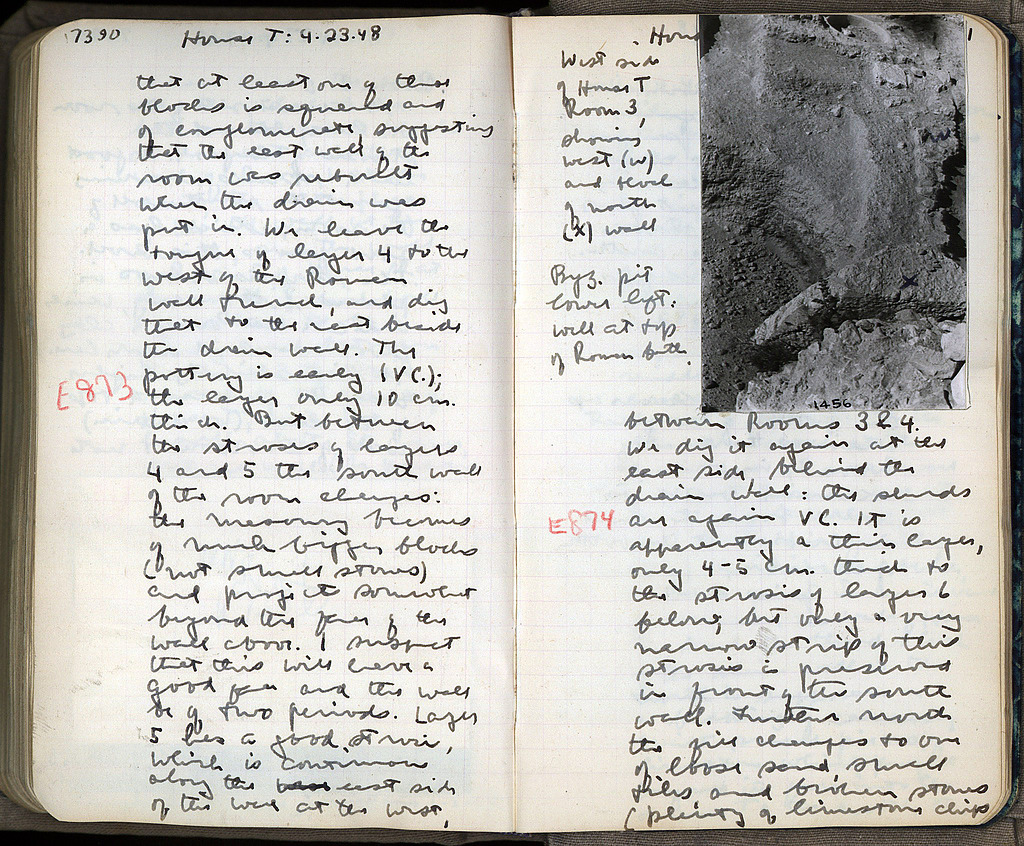 7390 House T: 4.23.48
that at least one of these
blocks is squared and
of conglomerate, suggesting
that the east wall of the
room was rebuilt
when the drain was
put in. We leave the
tongue of layer 4 to the
west of the Roman
wall trench, and dig
that to the east beside
the drain wall. The
E873
pottery is early (VC.);
the layer only 10 cm.
thick. But between
the stroses of layers
4 and 5 the south wall
of the room changes:
the masonry becomes
of much bigger blocks
(not small stones)
and projects somewhat
beyond the face of the
wall above. I suspect
that this will have a
good face and the wall
be of two periods. Layer
5 has a good strosis,
which is continuous
along the east side
of the wall at the west,
House
West side
of House T
Room 3,
showing
west (w)
and
of north
(x) wall
Byz. pit
lower left:
wall at top
of Roman bath.
1456
between Rooms 3 & 4.
We dig it again at the
east side, behind the
drain wall: the sherds
E874
are again VC. It is
apparently a thin layer,
only 4-5 cm. thick to
the strosis of layer 6
below, but only a very
narrow strip of this
strosis is preserved
in front of the south
wall. Further north
the fill changes to one
of loose sand, small
tiles and broken stones
(plenty of limestone chips